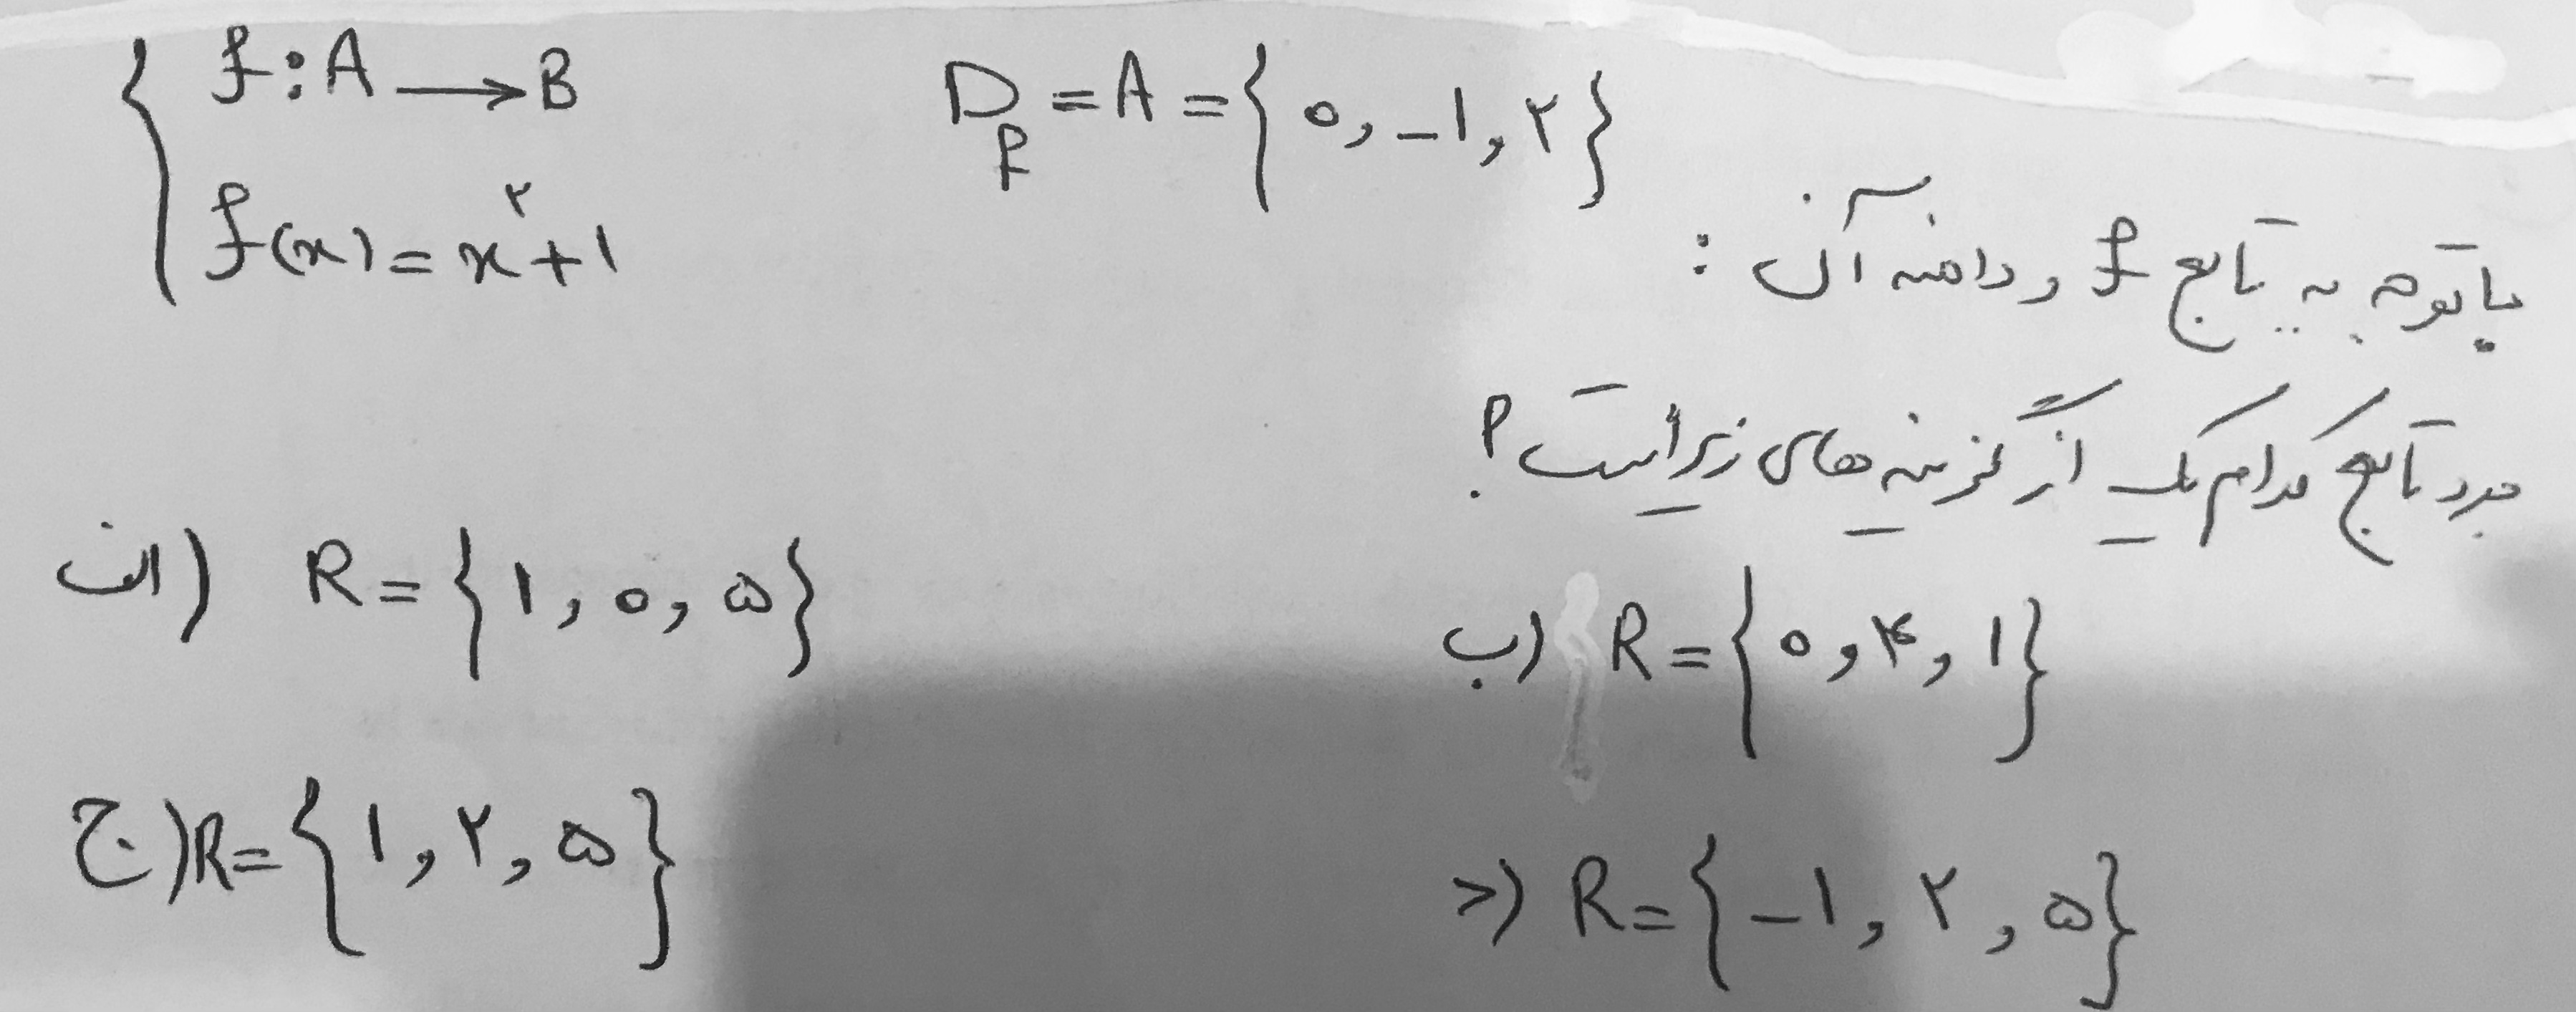 f: A → B
f(x) = x^۲ + ۱
D_f = A = {۰, -۱, ۲}
با توجه به تابع f و دامنه آن :
برد تابع کدام یک از گزینه های زیر است ؟
الف) R = {۱, ۰, ۵}
ب) R = {۰, ۴, ۱}
ج) R = {۱, ۲, ۵}
د) R = {-۱, ۲, ۵}